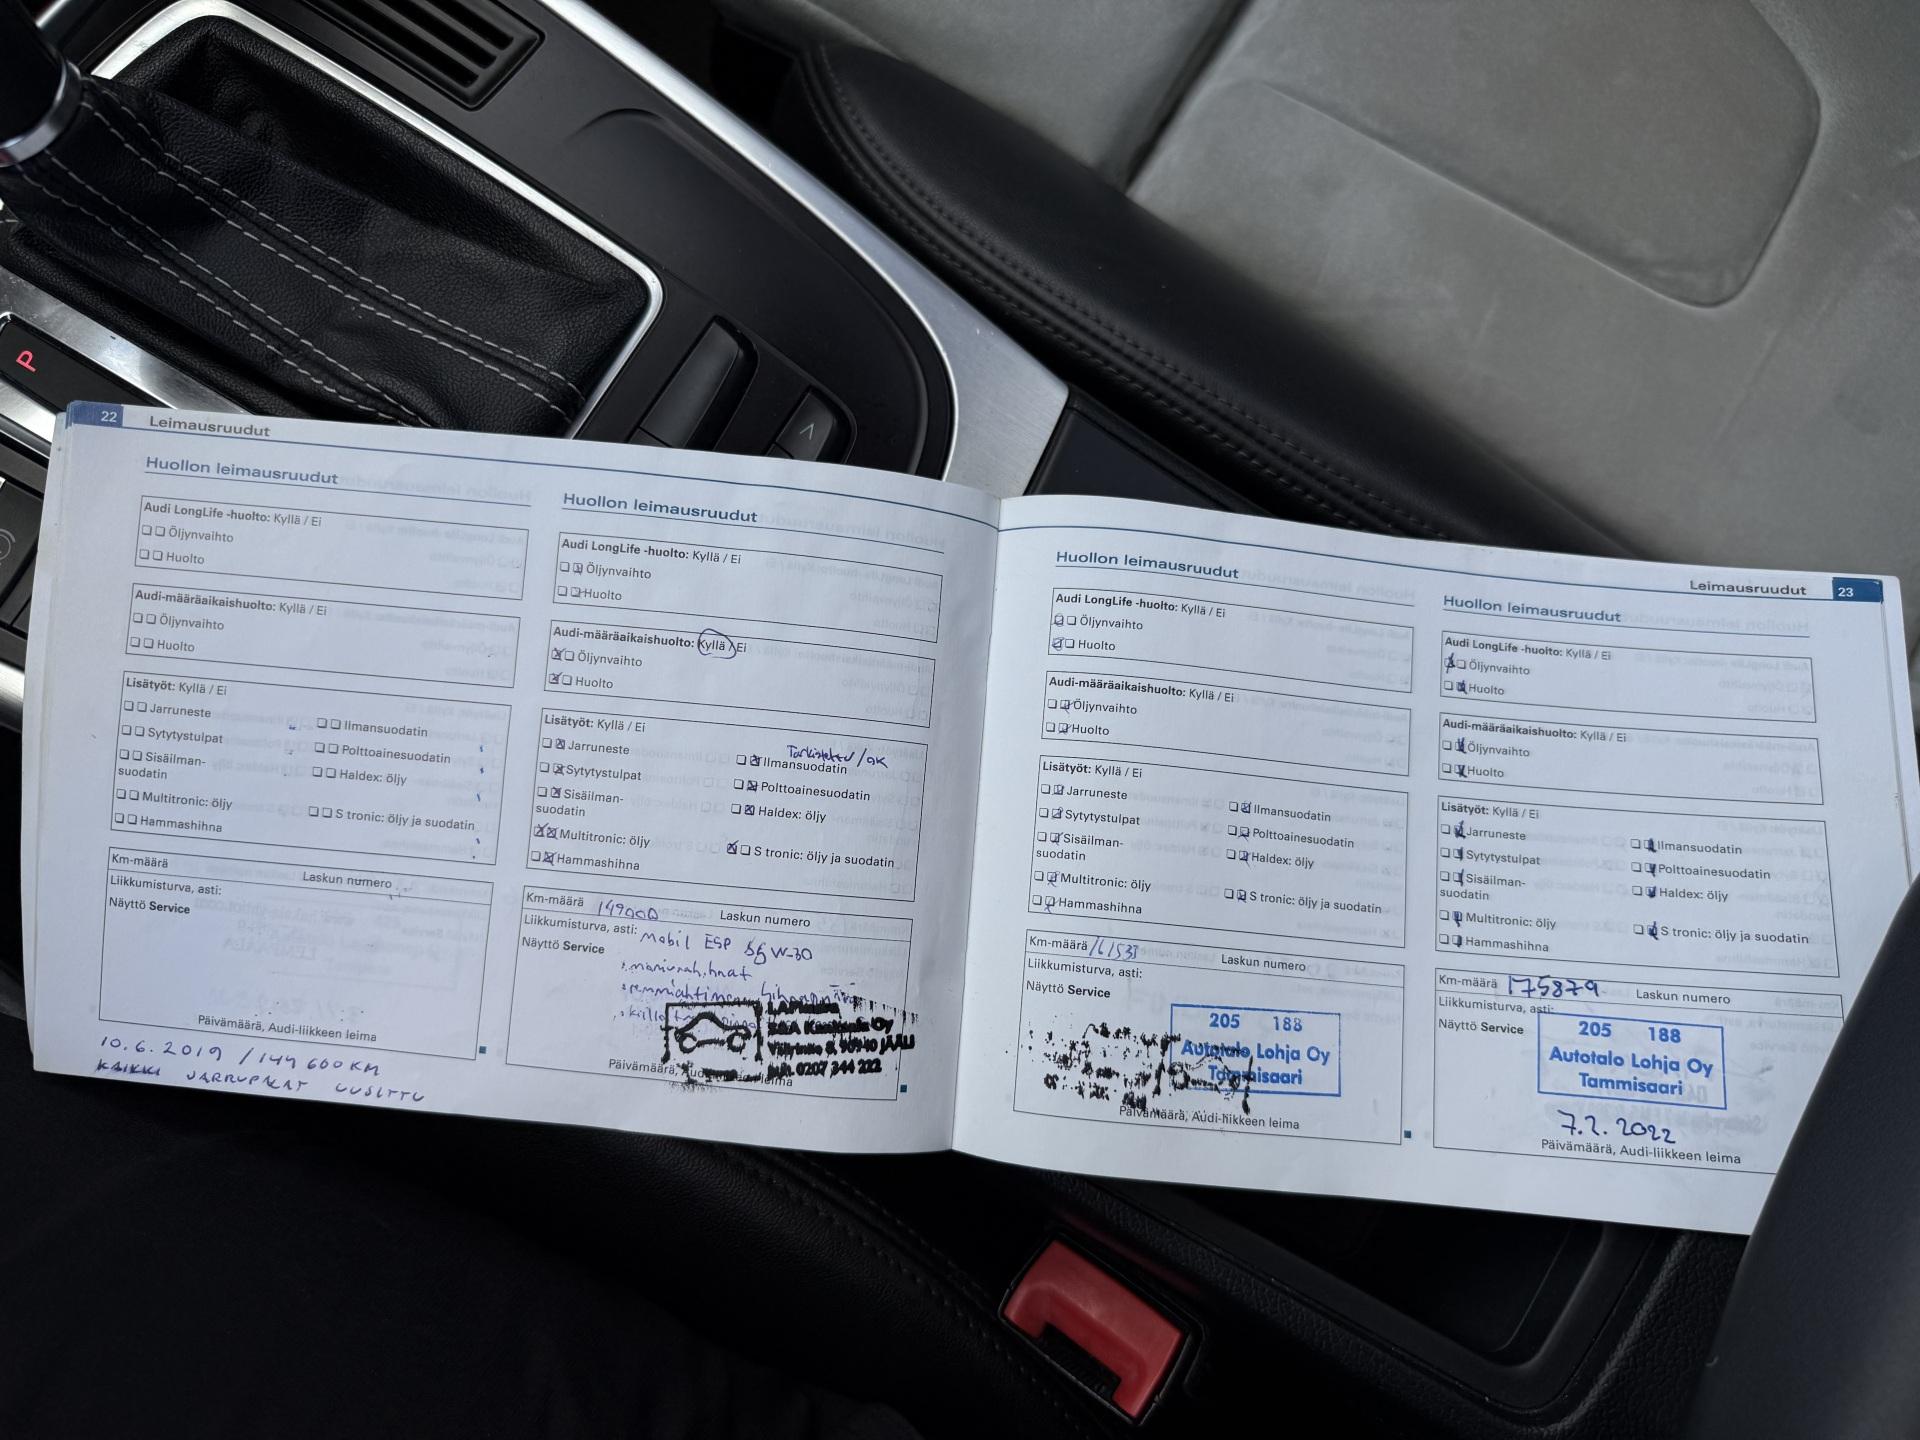 P
22 Leimausruudut
Huollon leimausruudut
Audi LongLife -huolto: Kyllä / Ei
Öljynvaihto
Huolto
Audi-määräaikaishuolto: Kyllä / Ei
Öljynvaihto
Huolto
Lisätyöt: Kyllä / Ei
Jarruneste
Ilmansuodatin
Sytytystulpat
Polttoainesuodatin
Sisäilman-
suodatin
Haldex: öljy
Multitronic: öljy
S tronic: öljy ja suodatin
Hammashihna
Km-määrä
Laskun numero
Liikkumisturva, asti:
Näyttö Service
Päivämäärä, Audi-liikkeen leima
10.6.2019 / 144 600 KM
KAIKKI JARRUPALAT UUSITTU
Huollon leimausruudut
Audi LongLife -huolto: Kyllä / Ei
Öljynvaihto
Huolto
Audi-määräaikaishuolto: Kyllä / Ei
Öljynvaihto
Huolto
Lisätyöt: Kyllä / Ei
Tarkistettu / OK
Jarruneste
Ilmansuodatin
Sytytystulpat
Polttoainesuodatin
Sisäilman-
suodatin
Haldex: öljy
Multitronic: öljy
S tronic: öljy ja suodatin
Hammashihna
Km-määrä 149000 Laskun numero
Liikkumisturva, asti: Mobil ESP W-30
Näyttö Service
Oy
JÄÄLI
0207 344 222
Päivämäärä, leima
Huollon leimausruudut
Audi LongLife -huolto: Kyllä / Ei
Öljynvaihto
Huolto
Audi-määräaikaishuolto: Kyllä / Ei
Öljynvaihto
Huolto
Lisätyöt: Kyllä / Ei
Jarruneste
Ilmansuodatin
Sytytystulpat
Polttoainesuodatin
Sisäilman-
suodatin
Haldex: öljy
Multitronic: öljy
S tronic: öljy ja suodatin
Hammashihna
Km-määrä Laskun numero
Liikkumisturva, asti:
Näyttö Service
205 188
Autotalo Lohja Oy
Tammisaari
Päivämäärä, Audi-liikkeen leima
Leimausruudut 23
Huollon leimausruudut
Audi LongLife -huolto: Kyllä / Ei
Öljynvaihto
Huolto
Audi-määräaikaishuolto: Kyllä / Ei
Öljynvaihto
Huolto
Lisätyöt: Kyllä / Ei
Jarruneste
Ilmansuodatin
Sytytystulpat
Polttoainesuodatin
Sisäilman-
suodatin
Haldex: öljy
Multitronic: öljy
S tronic: öljy ja suodatin
Hammashihna
Km-määrä 175879 Laskun numero
Liikkumisturva, asti:
Näyttö Service
205 188
Autotalo Lohja Oy
Tammisaari
7.2.2022
Päivämäärä, Audi-liikkeen leima